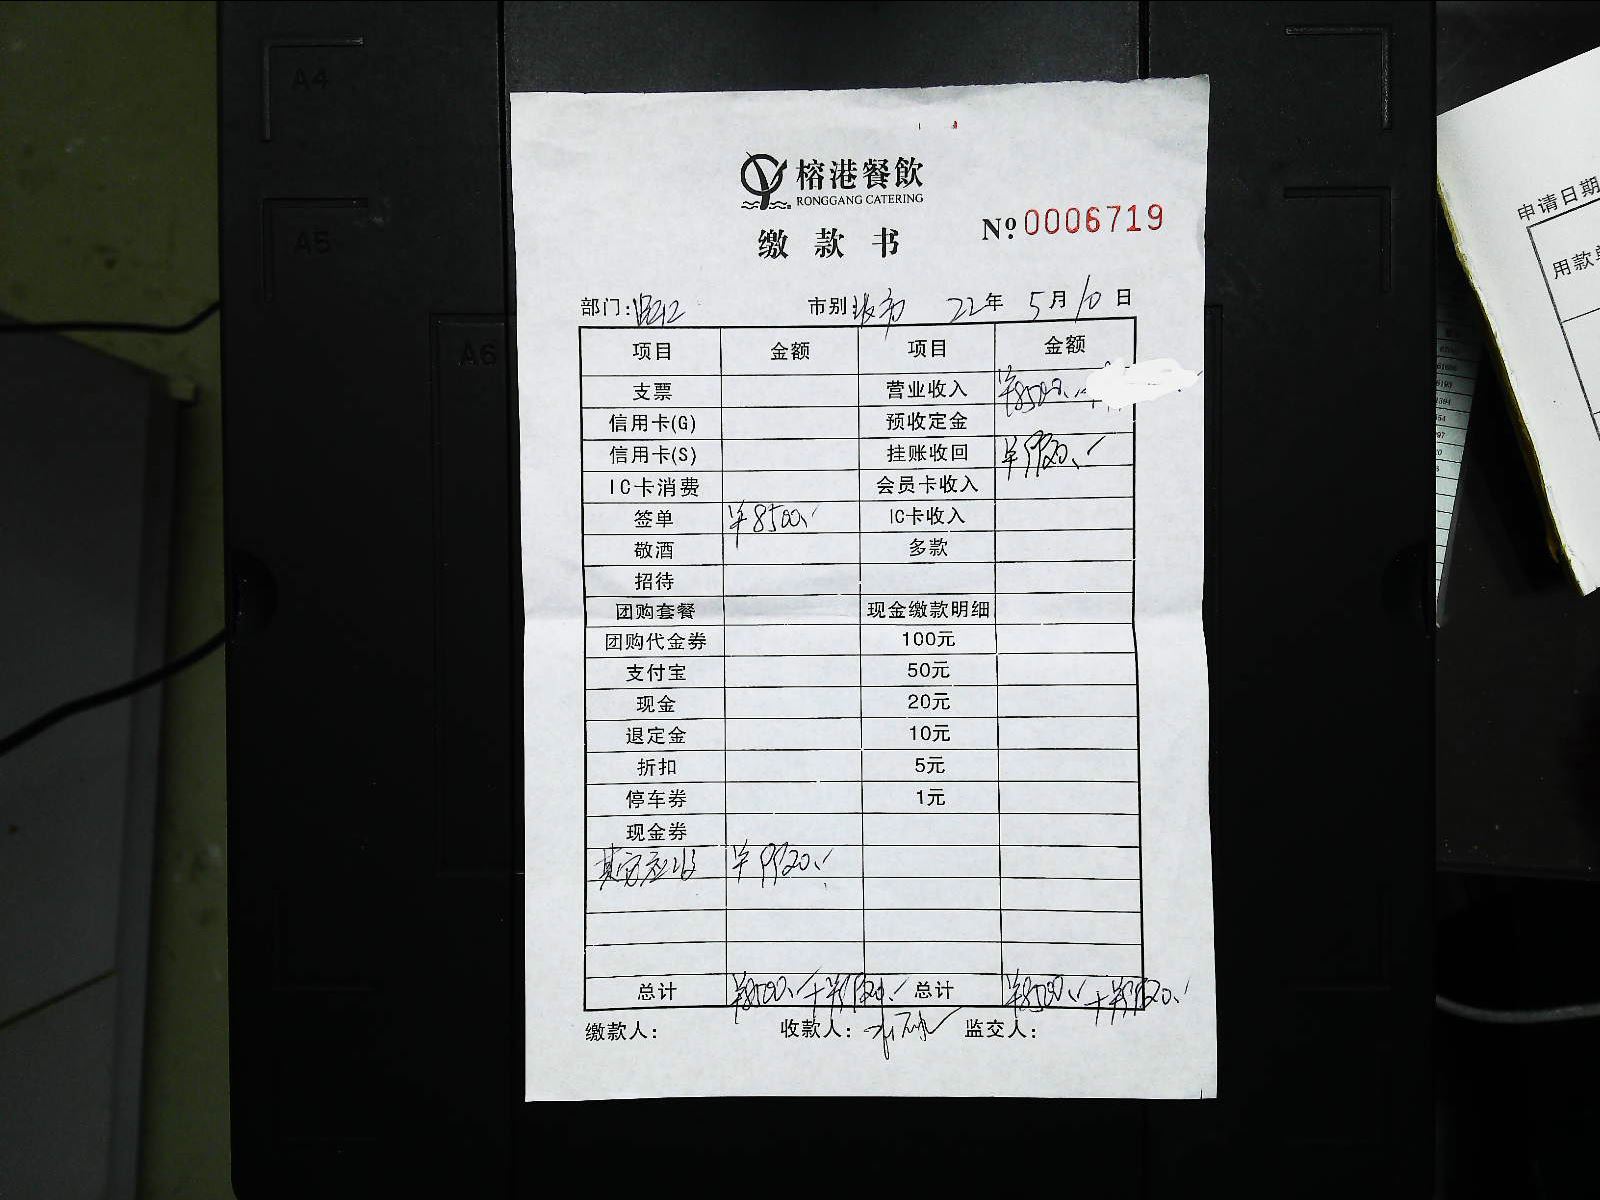 A4
A5
A6
榕港餐飲
RONGGANG CATERING
缴款书
Nº 0006719
部门: 市别 22年 5月 10日
项目 金额 项目 金额
支票 营业收入 ¥8500.
信用卡(G) 预收定金
信用卡(S) 挂账收回 ¥9920.
IC卡消费 会员卡收入
签单 ¥8500. IC卡收入
敬酒 多款
招待
团购套餐 现金缴款明细
团购代金券 100元
支付宝 50元
现金 20元
退定金 10元
折扣 5元
停车券 1元
现金券
其它应收 ¥9920.
总计 ¥8500.+¥9920. 总计 ¥8500.+¥9920.
缴款人: 收款人: 监交人:
申请日期
用款单